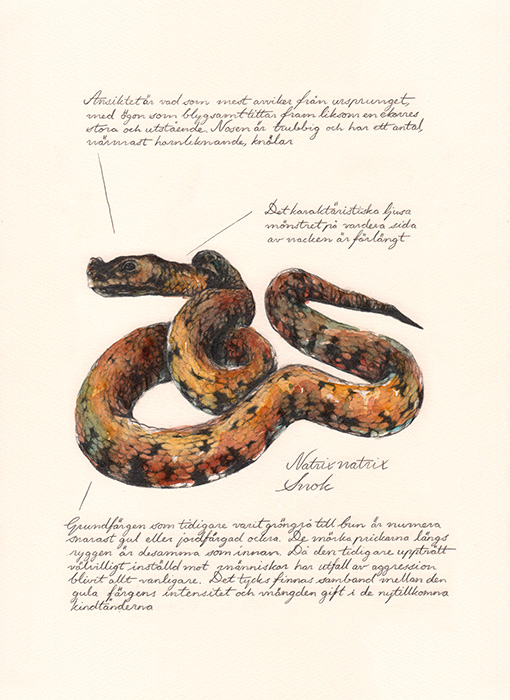 Ansiktet är vad som mest avviker från ursprunget,
med ögon som blygsamt tittar fram liksom en ekorres
stora och utstående. Nosen är trubbig och har ett antal,
närmast hornliknande, knölar
Det karaktäristiska ljusa
mönstret på vardera sida
av nacken är förlängt
Natrix natrix
Snok
Grundfärgen som tidigare varit gröngrå till brun är numera
snarast gul eller jordfärgad ockra. De mörka prickarna längs
ryggen är desamma som innan. Då den tidigare uppträtt
välvilligt inställd mot människor har utfall av aggression
blivit allt vanligare. Det tycks finnas samband mellan den
gula färgens intensitet och mängden gift i de nytillkomna
kindtänderna